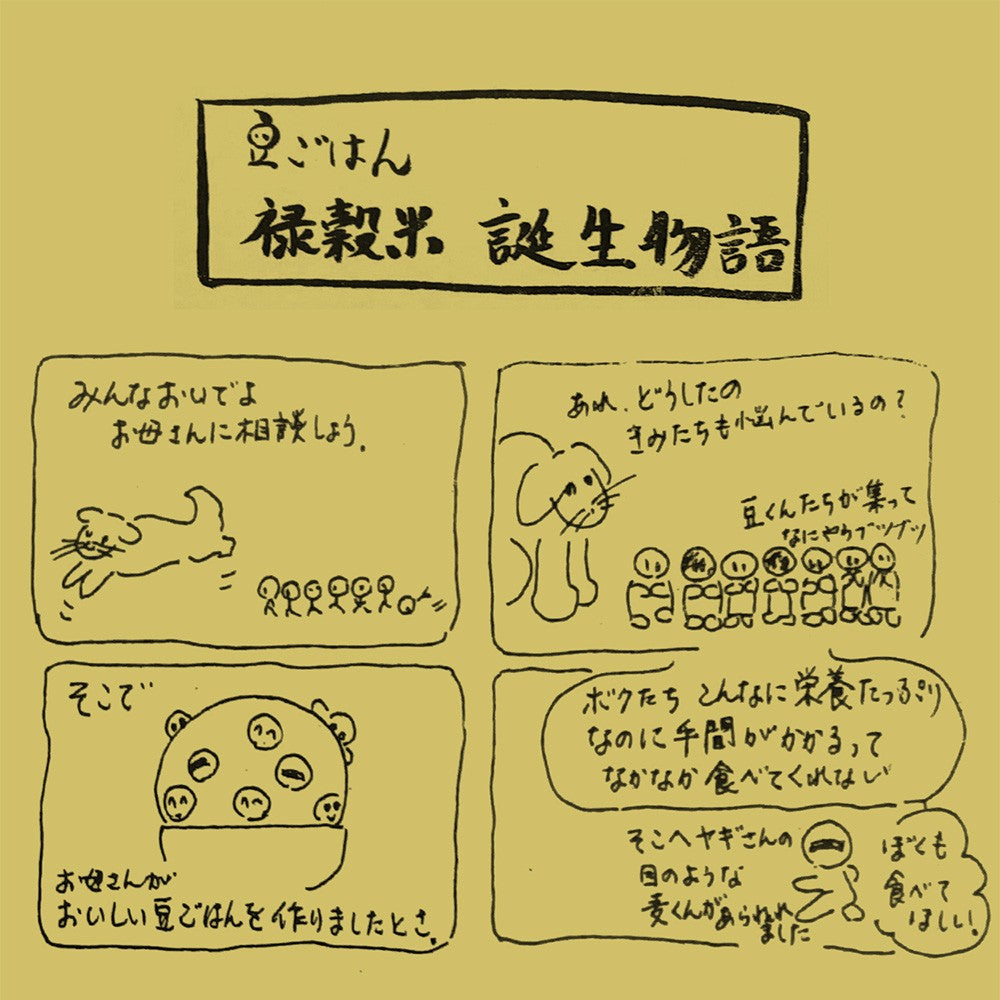 豆ごはん
禄穀米 誕生物語
あれ、どうしたの
きみたちも悩んでいるの？
豆くんたちが集って
なにやらブツブツ
ボクたち こんなに栄養たっぷり
なのに手間がかかるって
なかなか食べてくれない
そこへヤギさんの
目のような
麦くんがあらわれ
ました
ぼくも
食べて
ほしい！
みんなおいでよ
お母さんに相談しよう。
そこで
お母さんが
おいしい豆ごはんを作りましたとさ。